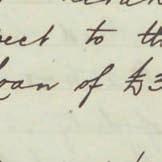 pect to th
Loan of £3